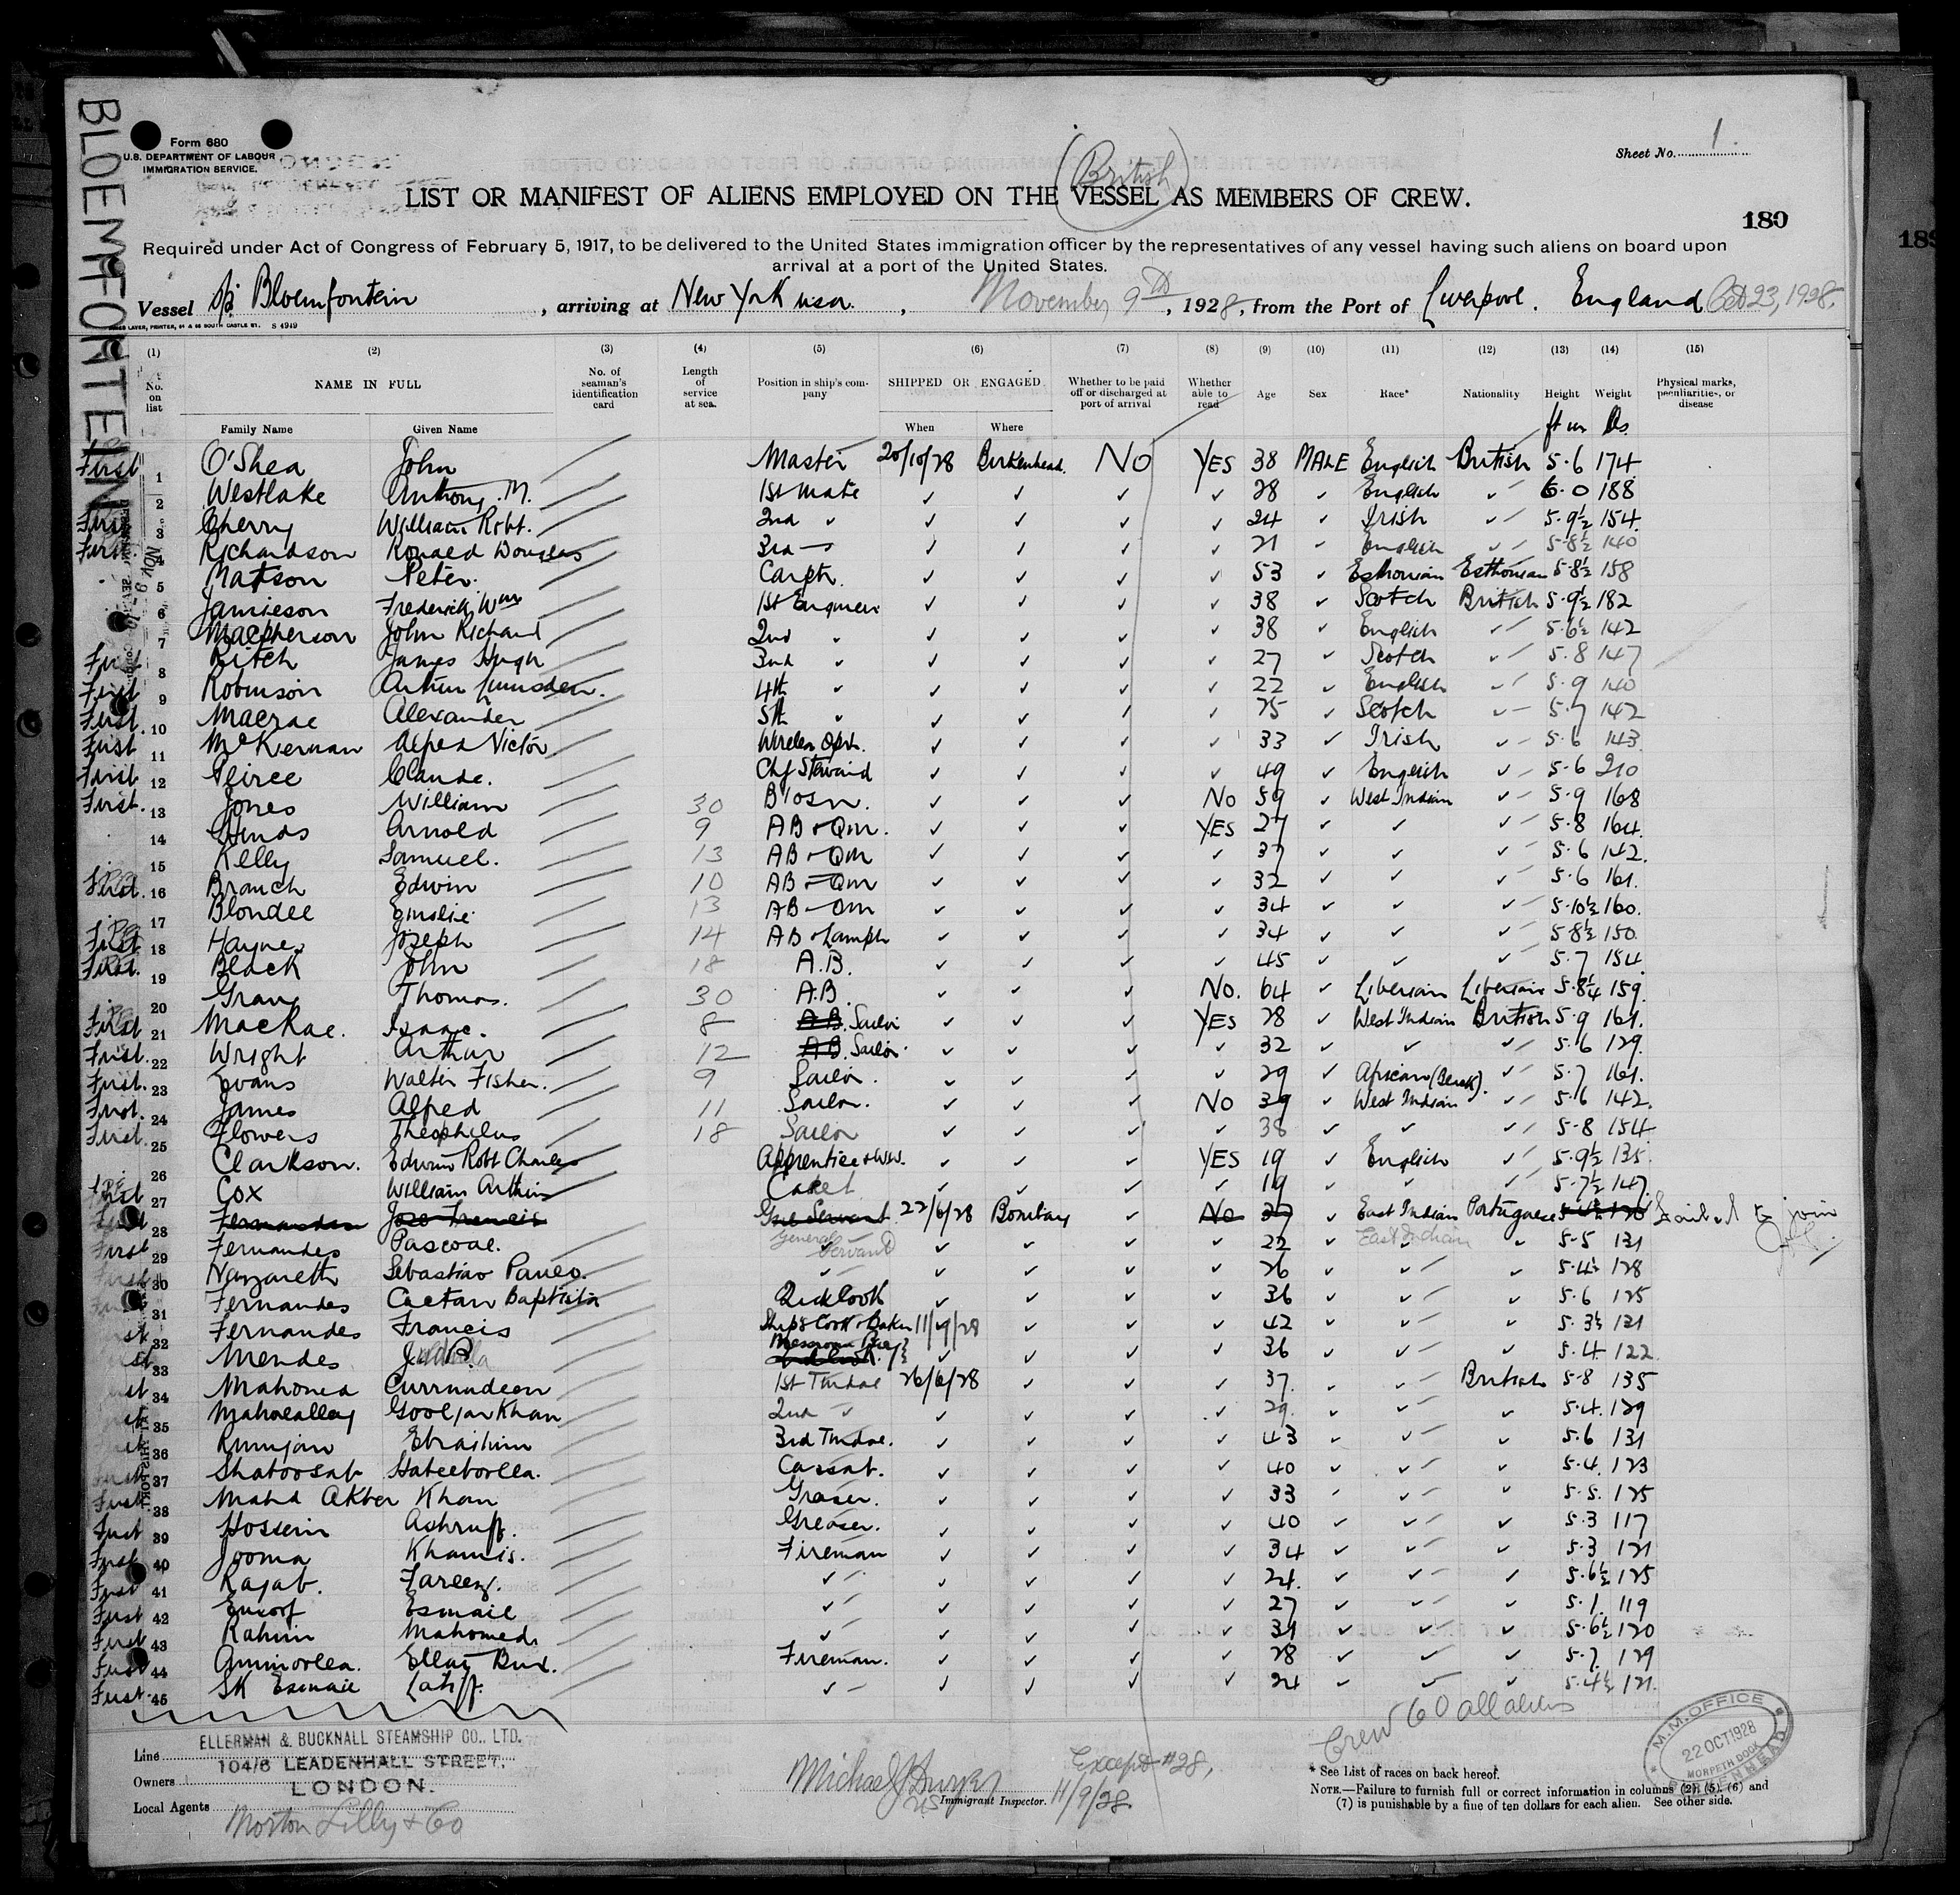 BLOEMFONTEIN
Form 680
U.S. DEPARTMENT OF LABOUR
IMMIGRATION SERVICE.
Sheet No. 1.
(British)
LIST OR MANIFEST OF ALIENS EMPLOYED ON THE VESSEL AS MEMBERS OF CREW.
180
Required under Act of Congress of February 5, 1917, to be delivered to the United States immigration officer by the representatives of any vessel having such aliens on board upon
arrival at a port of the United States.
Vessel s/s Bloemfontein, arriving at New York usa., November 9th, 1928, from the Port of Liverpool. England Oct 23, 1928.
S 4949
(1) (2) (3) (4) (5) (6) (7) (8) (9) (10) (11) (12) (13) (14) (15)
No. on list NAME IN FULL No. of seaman's identification card Length of service at sea. Position in ship's company SHIPPED OR ENGAGED Whether to be paid off or discharged at port of arrival Whether able to read Age Sex Race* Nationality Height Weight Physical marks, peculiarities, or disease
Family Name Given Name When Where ft in lbs.
First 1 O'Shea John Master 20/10/28 Birkenhead. NO YES 38 MALE English British 5.6 174
2 Westlake Anthony. M. 1st Mate ✓ ✓ ✓ ✓ 28 ✓ English ✓ 6.0 188
First 3 Cherry William Robt. 2nd ✓ ✓ ✓ ✓ ✓ 24 ✓ Irish ✓ 5.9½ 154
First 4 Richardson Ronald Douglas 3rd ✓ ✓ ✓ ✓ 21 ✓ English ✓ 5.8½ 140
5 Matson Peter. Carptr. ✓ ✓ ✓ ✓ 53 ✓ Esthonian Esthonian 5.8½ 158
6 Jamieson Frederick Wm 1st Engineer ✓ ✓ ✓ ✓ 38 ✓ Scotch British 5.9½ 182
7 Macpherson John Richard 2nd ✓ ✓ ✓ ✓ ✓ 38 English ✓ 5.6½ 142
First 8 Ritch James Hugh 3rd ✓ ✓ ✓ ✓ ✓ 27 ✓ Scotch ✓ 5.8 147
First 9 Robinson Arthur Lumsden. 4th ✓ ✓ ✓ ✓ ✓ 22 ✓ English ✓ 5.9 140
First. 10 Macrae Alexander 5th ✓ ✓ ✓ ✓ ✓ 25 ✓ Scotch ✓ 5.7 142
First 11 McKiernan Alfred Victor. Wireless Optr. ✓ ✓ ✓ ✓ 33 ✓ Irish ✓ 5.6 143
First 12 Peirce Claude. Chf Steward ✓ ✓ ✓ ✓ 49 ✓ English ✓ 5.6 210
First. 13 Jones William 30 Bosn. ✓ ✓ ✓ NO 59 ✓ West Indian ✓ 5.9 168
14 Hinds Arnold 9 AB & Qm. ✓ ✓ ✓ YES 27 ✓ ✓ ✓ 5.8 164
15 Kelly Samuel. 13 AB & Qm ✓ ✓ ✓ ✓ 37 ✓ ✓ ✓ 5.6 142.
First. 16 Branch Edwin 10 AB & Qm ✓ ✓ ✓ ✓ 32 ✓ ✓ ✓ 5.6 161.
17 Blondee 13 AB Qm ✓ ✓ ✓ ✓ 34 ✓ ✓ ✓ 5.10½ 160.
First 18 Haynes Joseph 14 AB & Lamptr ✓ ✓ ✓ ✓ 34 ✓ ✓ ✓ 5.8½ 150.
First. 19 Black John 18 A.B. ✓ ✓ ✓ ✓ 45 ✓ ✓ ✓ 5.7 154
20 Gray Thomas. 30 A.B. ✓ ✓ ✓ NO. 64 ✓ Liberian Liberian 5.8¼ 159
First 21 MacRae. Isaac. 8 A.B. Sailor ✓ ✓ ✓ YES 28 ✓ West Indian British 5.9 161.
First. 22 Wright Arthur 12 A.B. Sailor. ✓ ✓ ✓ ✓ 32 ✓ ✓ ✓ 5.6 129.
First. 23 Evans Walter Fisher. 9 Sailor. ✓ ✓ ✓ ✓ 29 ✓ African (Black). ✓ 5.7 161.
First. 24 James Alfred 11 Sailor. ✓ ✓ ✓ NO 39 ✓ West Indian ✓ 5.6 142.
First. 25 Flowers Theophilus 18 Sailor ✓ ✓ ✓ ✓ 38 ✓ ✓ ✓ 5.8 154
26 Clarkson. Edwin Robt Charles Apprentice ✓ ✓ ✓ YES 19 ✓ English ✓ 5.9½ 135.
First 27 Cox William Arthur Cadet ✓ ✓ ✓ ✓ 19 ✓ ✓ ✓ 5.7½ 147.
First 28 Fernandes Jose Francis Genl Servant 22/6/28 Bombay ✓ No 37 ✓ East Indian Portuguese Failed to join
First 29 Fernandes Pascoal. General Servant ✓ ✓ ✓ ✓ 22 ✓ East Indian ✓ 5.5 131
First 30 Nazareth Sebastiao ✓ ✓ ✓ ✓ ✓ 26 ✓ ✓ ✓ 5.4½ 128
First 31 Fernandes Caetan Baptista 2nd Cook ✓ ✓ ✓ ✓ 36 ✓ ✓ ✓ 5.6 125
st 32 Fernandes Francis Ships Cook & Baker 11/9/28 ✓ ✓ ✓ 42 ✓ ✓ ✓ 5.3½ 131
st. 33 Mendes Messroom Boy ✓ ✓ ✓ ✓ 36 ✓ ✓ ✓ 5.4 122
34 Mahomed Currundeen 1st Tindal 26/6/28 ✓ ✓ ✓ 37. ✓ ✓ British 5.8 135
35 Mahoalley Gooljar Khan 2nd ✓ ✓ ✓ ✓ ✓ 29. ✓ ✓ 5.4. 129
36 Rumjan Ebrahim 3rd Tindal. ✓ ✓ ✓ ✓ 43 ✓ ✓ ✓ 5.6 131
First 37 Shatoosab Hateeboolla. Cassab. ✓ ✓ ✓ ✓ 40 ✓ ✓ ✓ 5.4. 123
First 38 Mahd Akber Khan Greaser. ✓ ✓ ✓ ✓ 33 ✓ ✓ ✓ 5.5. 125
First 39 Hossein Ashruff. Greaser. ✓ ✓ ✓ ✓ 40 ✓ ✓ ✓ 5.3 117
First 40 Jooma Khamis. Fireman ✓ ✓ ✓ ✓ 34 ✓ ✓ ✓ 5.3 121
First 41 Rajab. Fareez. ✓ ✓ ✓ ✓ ✓ 24. ✓ ✓ ✓ 5.6½ 125
First 42 Esmail ✓ ✓ ✓ ✓ ✓ 27 ✓ ✓ ✓ 5.1. 119
First 43 Rahim Mahomed. ✓ ✓ ✓ ✓ ✓ 31 ✓ ✓ ✓ 5.6½ 120
First 44 Aminoolla. Ellay Bux. Fireman. ✓ ✓ ✓ ✓ 28 ✓ ✓ ✓ 5.7. 129
First. 45 SK Esmail Latiff. ✓ ✓ ✓ ✓ ✓ 24 ✓ ✓ ✓ 5.4½ 121.
Crew 60 all aliens
Except #28,
Line ELLERMAN & BUCKNALL STEAMSHIP CO., LTD.
104/6 LEADENHALL STREET,
Owners LONDON.
Local Agents Norton Lilly & Co
Michael J Dwyer
US Immigrant Inspector. 11/9/28
M.M. OFFICE
22 OCT 1928
MORPETH DOCK
BIRKENHEAD
* See List of races on back hereof.
NOTE.—Failure to furnish full or correct information in columns (2), (5), (6) and
(7) is punishable by a fine of ten dollars for each alien. See other side.